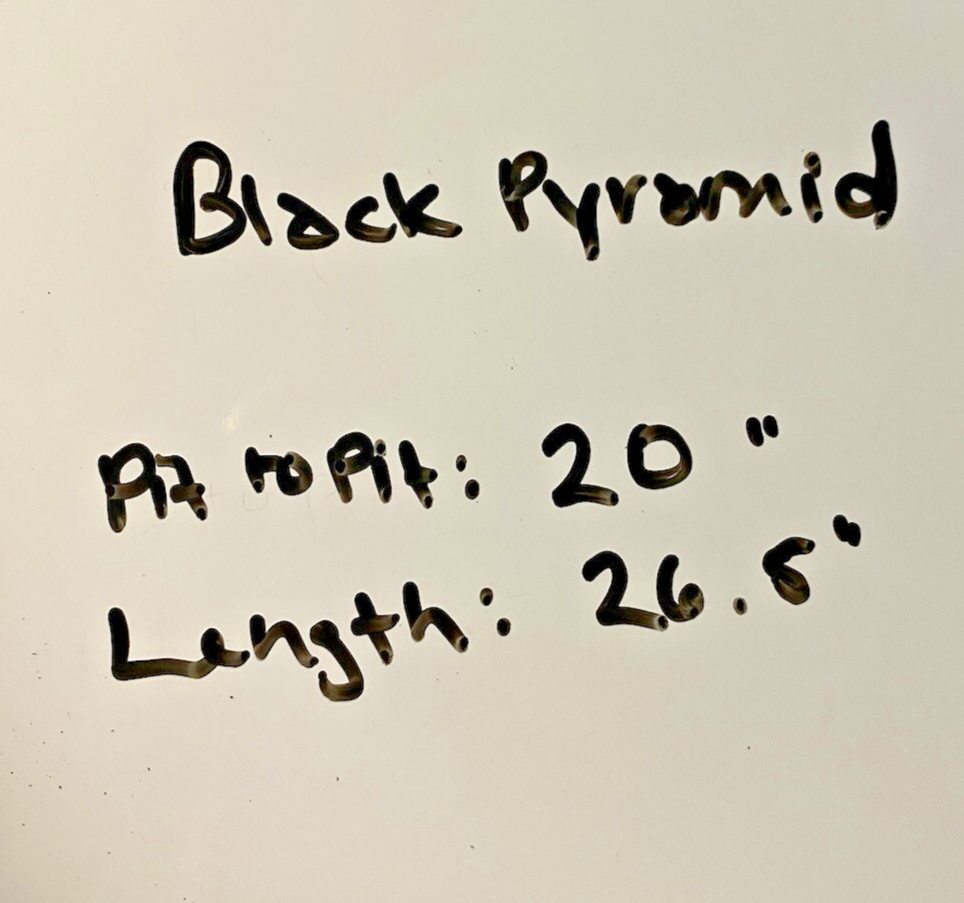 Black Pyramid
Pit to Pit: 20"
Length: 26.5"